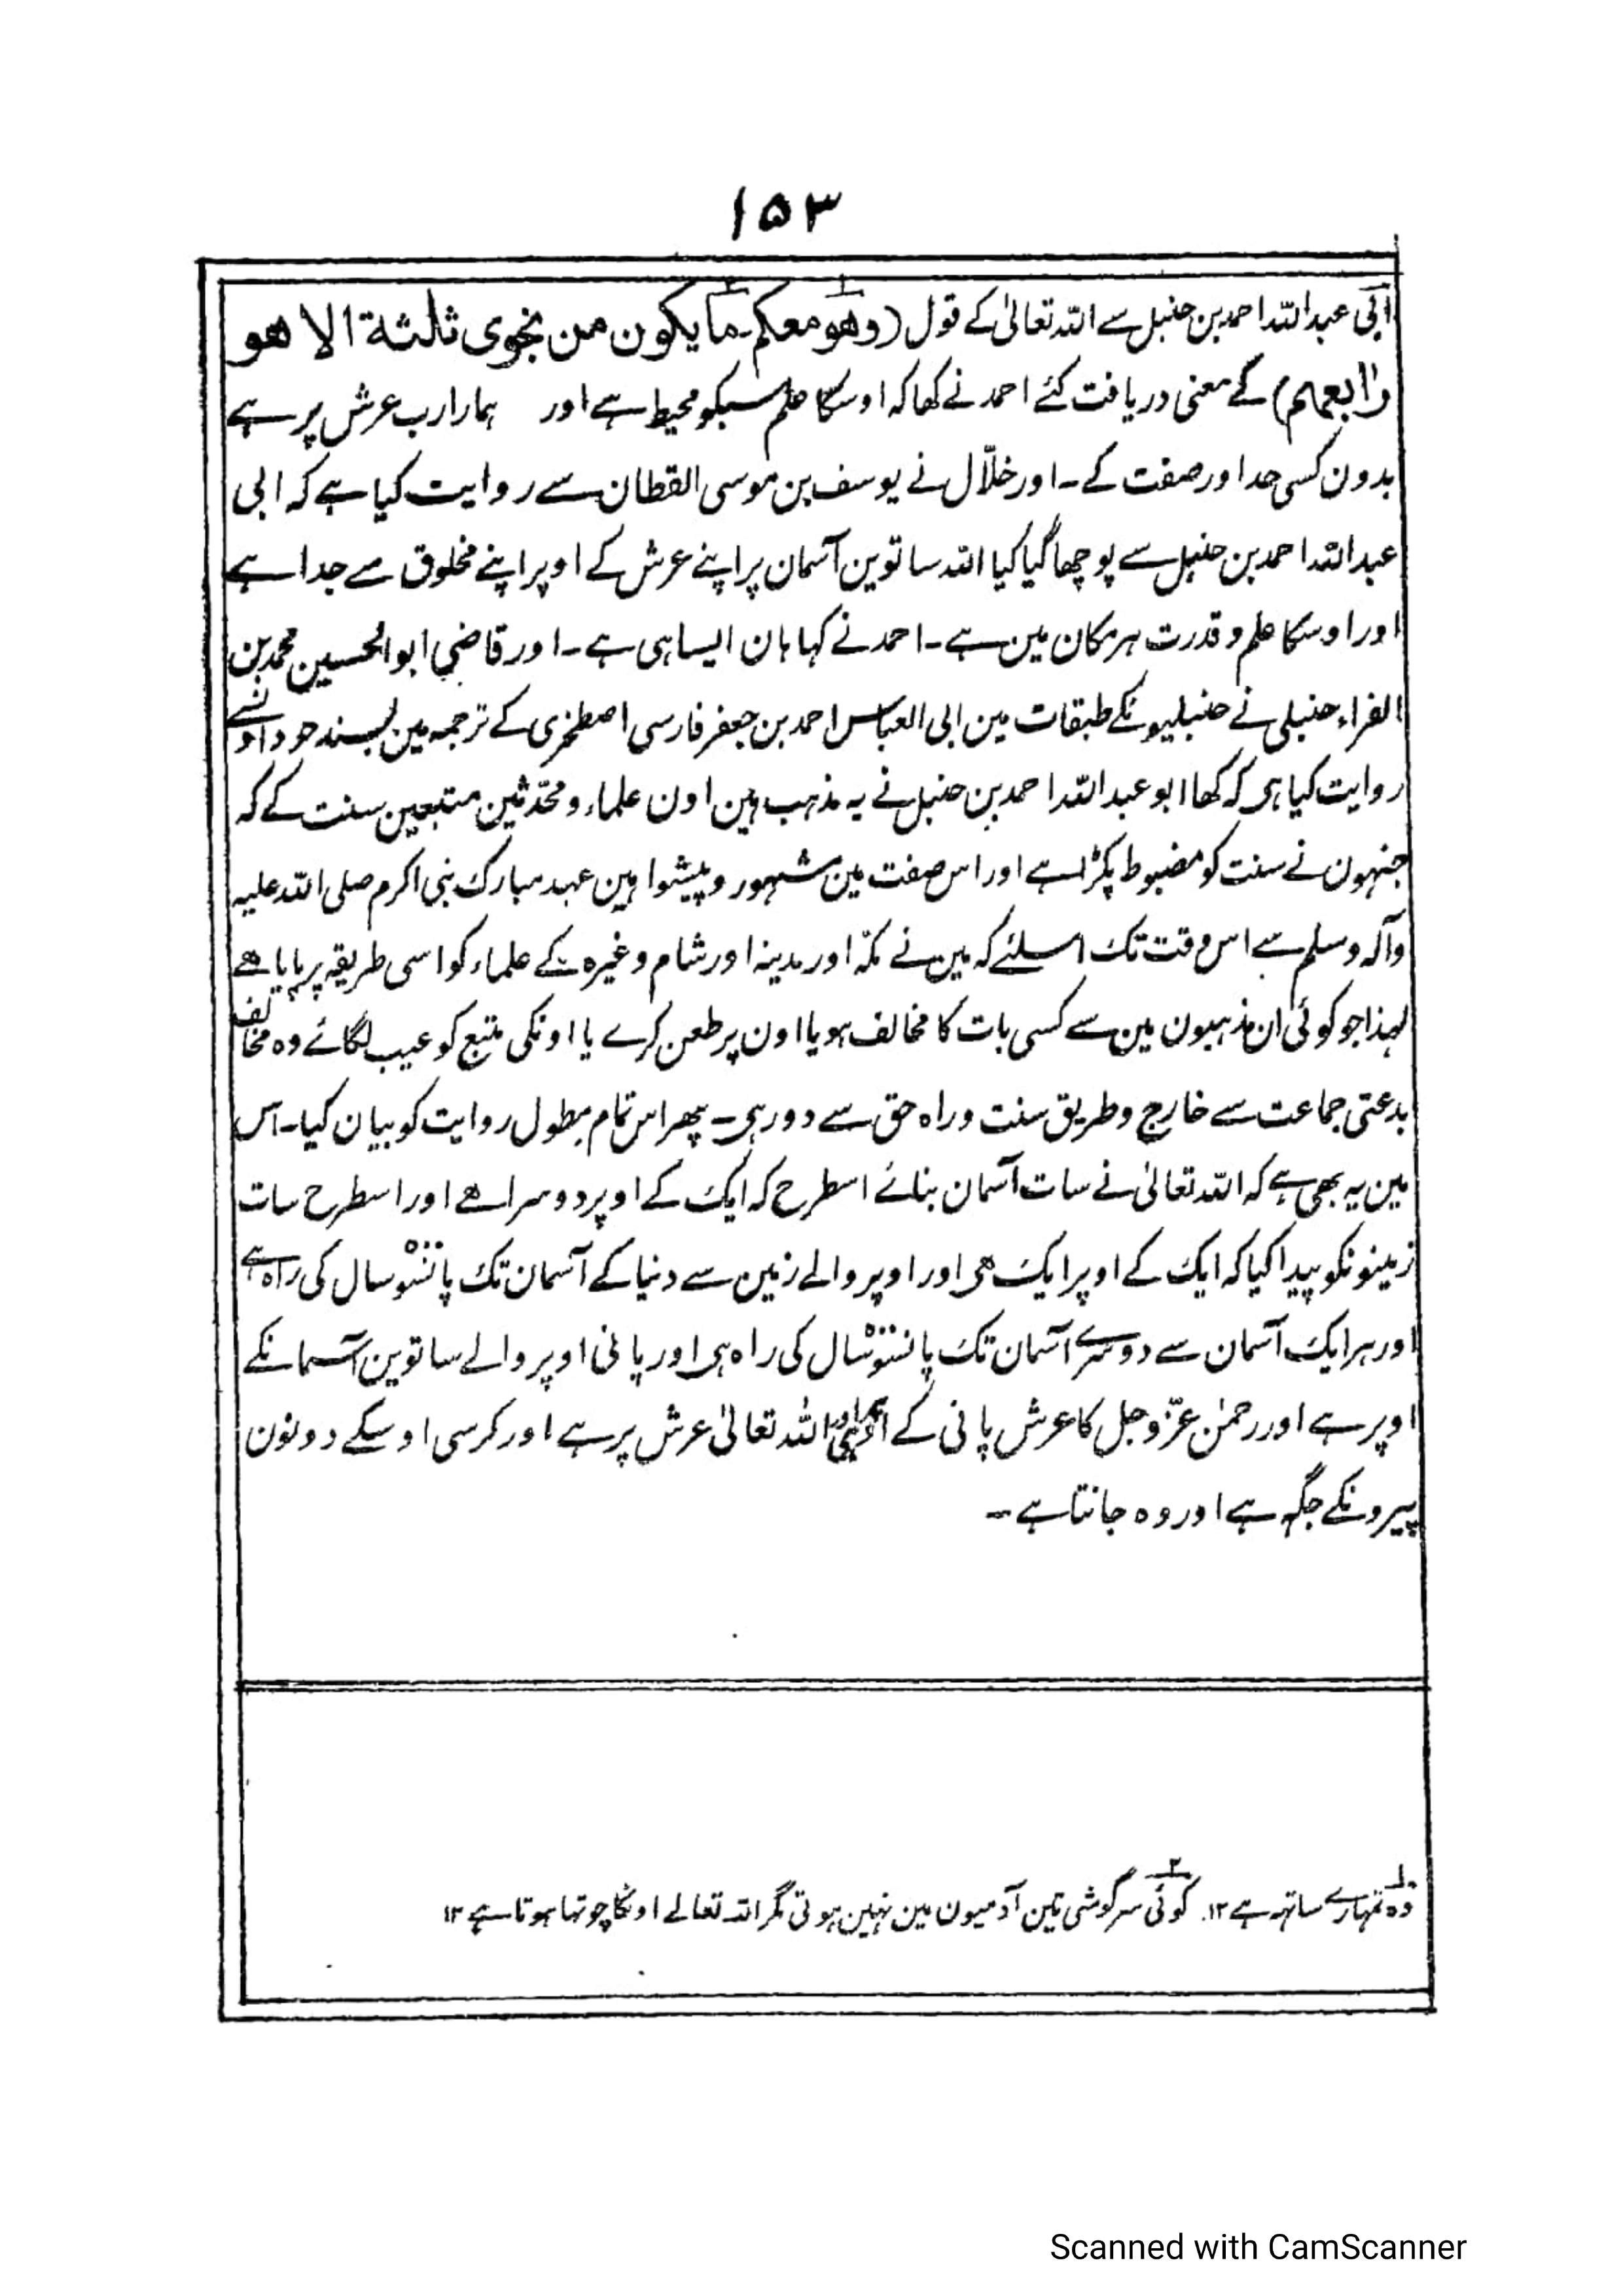 ۱۵۳
ابی عبداللہ احمد بن حنبل سے اللہ تعالیٰ کے قول (وھو معکم۔ ما یکون من نجوی ثلثة الا ھو
رابعھم) کے معنی دریافت کئے احمد نے کھا کہ اوسکا علم سبکو محیط ہے اور ہمارا رب عرش پر ہے
بدون کسی حد اور صفت کے۔ اور خلّال نے یوسف بن موسی القطان سے روایت کیا ہے کہ ابی
عبداللہ احمد بن حنبل سے پوچھا گیا کیا اللہ ساتوین آسمان پر اپنے عرش کے اوپر اپنے مخلوق سے جدا ہے
اور اوسکا علم و قدرت ہر مکان مین ہے۔ احمد نے کہا ہان ایسا ہی ہے۔ اور قاضی ابوالحسین محمد بن
الفراء حنبلی نے حنبلیونکے طبقات مین ابی العباس احمد بن جعفر فارسی اصطخری کے ترجمہ مین بسند خود اونسے
روایت کیا ہی کہ کھا ابو عبداللہ احمد بن حنبل نے یہ مذہب ہین اون علماء و محدّثین متبعین سنت کے کہ
جنہون نے سنت کو مضبوط پکڑا ہے اور اس صفت مین مشہور و پیشوا ہین عہد مبارک نبی اکرم صلی اللہ علیہ
وآلہ وسلم سے اس وقت تک اسلئے کہ مین نے مکّہ اور مدینہ اور شام وغیرہ کے علماء کو اسی طریقہ پر پایا ھے
لہذا جو کوئی ان مذہبون مین سے کسی بات کا مخالف ہو یا اون پر طعن کرے یا اونکی متبع کو عیب لگائے وہ مخالف
بدعتی جماعت سے خارج و طریق سنت و راہ حق سے دور ہی۔ پھر اس تمام مطول روایت کو بیان کیا۔ اس
مین یہ بھی ہے کہ اللہ تعالیٰ نے سات آسمان بنائے اسطرح کہ ایک کے اوپر دوسرا ھے اور اسطرح سات
زمینونکو پیدا کیا کہ ایک کے اوپر ایک ھی اور اوپر والے زمین سے دنیا کے آسمان تک پانسو سال کی راہ ہے
اور ہر ایک آسمان سے دوسرے آسمان تک پانسو سال کی راہ ہی اور پانی اوپر والے ساتوین آسمانکے
اوپر ہے اور رحمٰن عزّوجل کا عرش پانی کے اللہ تعالیٰ عرش پر ہے اور کرسی اوسکے دونون
پیرونکے جگہ ہے اور وہ جانتا ہے۔
۱ وہ تمہارے ساتھ ہے ۱۲ ۲ کوئی سرگوشی تین آدمیون مین نہین ہوتی مگر اللہ تعالے اونکا چوتھا ہوتا ہے ۱۲
Scanned with CamScanner